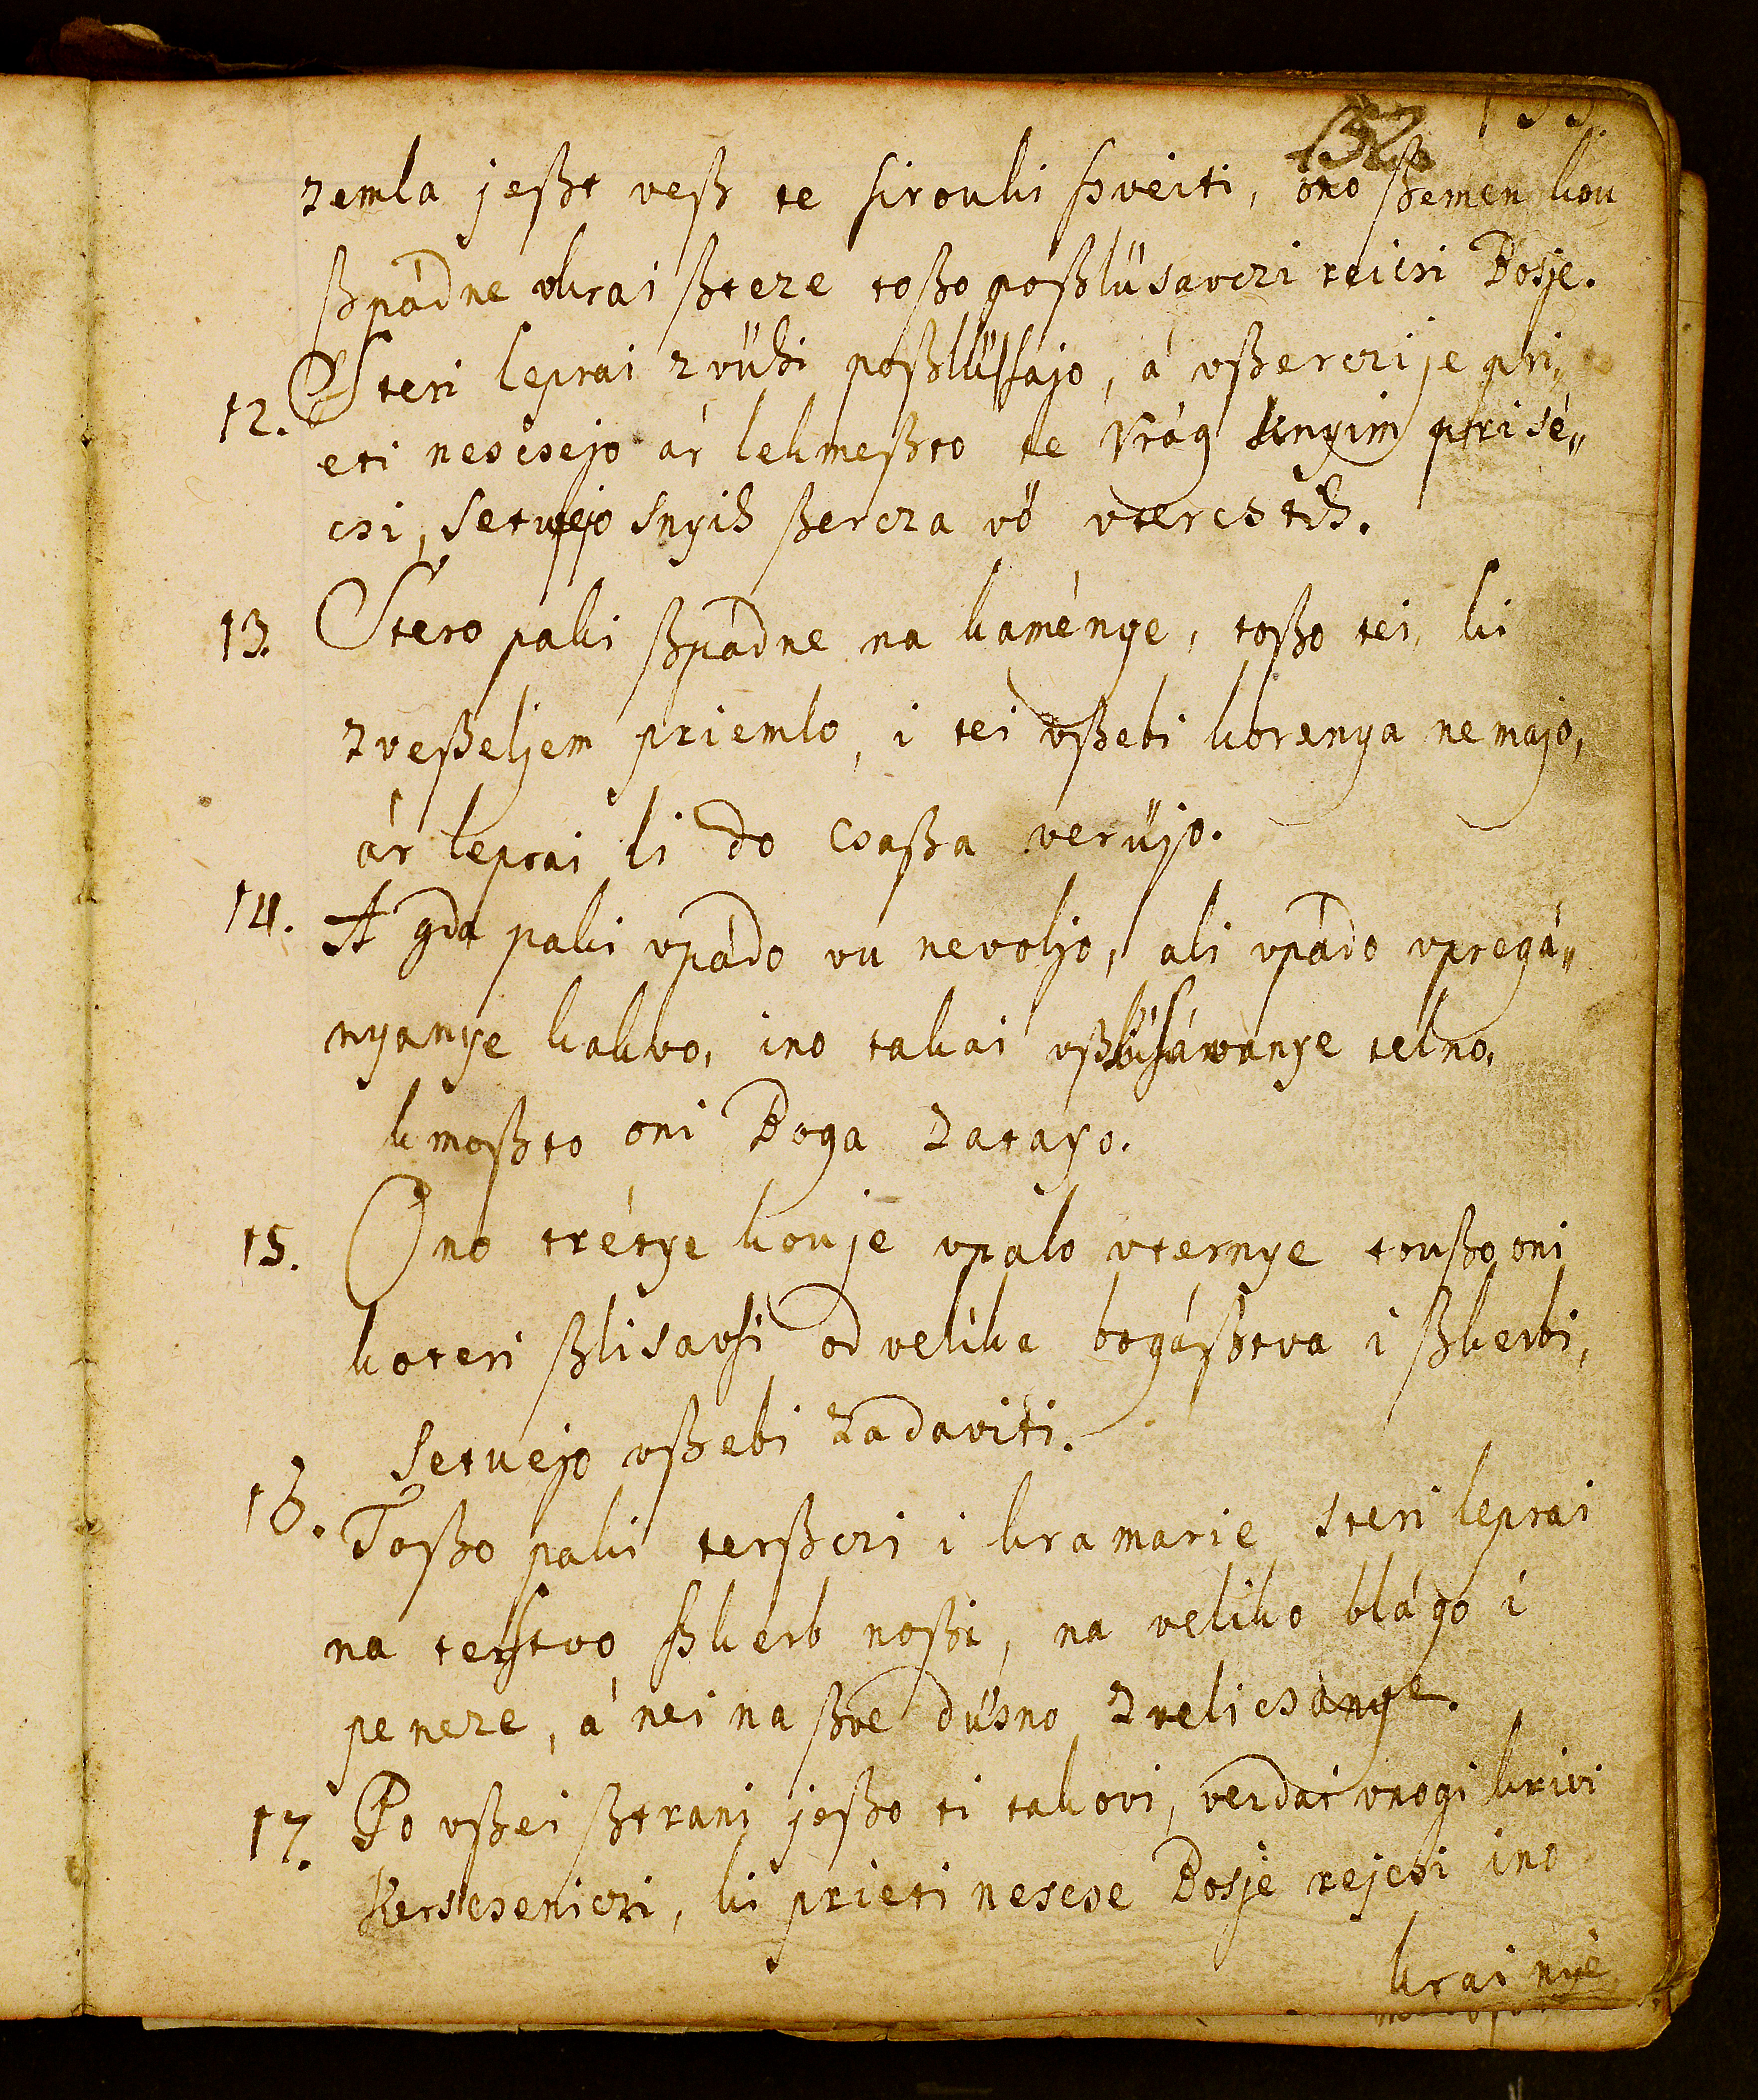 152. 133.
zemla jeßt veß te sirouki ßveiti, ono ßemen kou
ßpádne vkrai ßteze toßo poßlüsavczi reicsi Bosje.
12. Steri leprai zvühi poßlüssajo, á vßerczi je pri„
eti nescsejo ár lekmeßto te Vrág knyim prisé„
csi, setujejo snyih ßercza vö vtercstih.
13. Stero paki ßpádne na kaménye, toßo tei, ki
zveßeljem priemlo, i tei vßebi korenya nemajo,
ár leprai li do csaßa verüjo.
14. A gda paki vpádo vu nevoljo, ali vpádo vpregá„
nyanye kakvo, ino takai vßlüsávanye telno,
kmoßto oni Boga zatayo.
15. Ono trétye kouje vpalo vternye toußo oni
koteri ßlisavsi od velika bogáßtva i ßkerbi,
setuejo vßebi zadaviti.
16. Toßo paki terßczi i kramarie steri leprai
na terstvo ßkerb noßi, na veliko blágo i
peneze, á nei na ßve düsno zvelicsanye.
17. Po vßei ßtrani joßo ti takovi, veidai vnogi krivi
Kerscseniczi, ki prieti nescse Bosje rejcsi ino
krai nyé